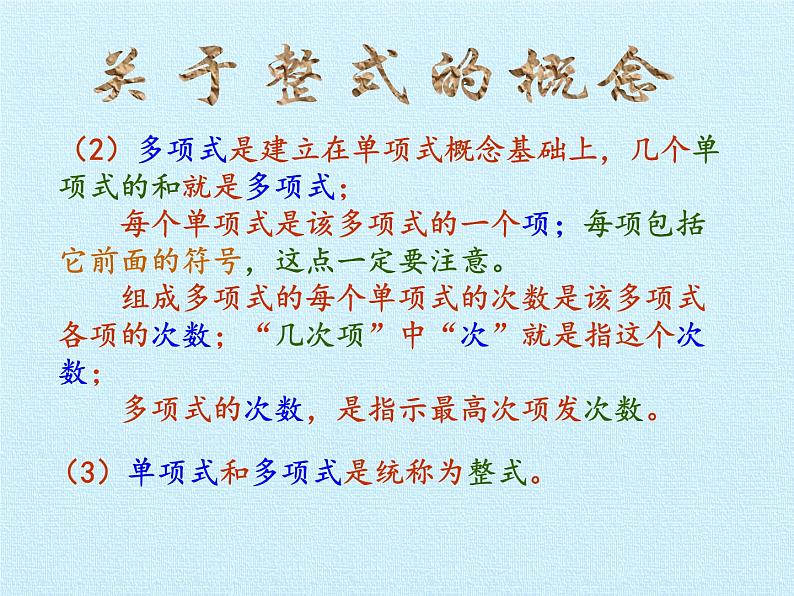 关于整式的概念
（2）多项式是建立在单项式概念基础上，几个单
项式的和就是多项式；
每个单项式是该多项式的一个项；每项包括
它前面的符号，这点一定要注意。
组成多项式的每个单项式的次数是该多项式
各项的次数；“几次项”中“次”就是指这个次
数；
多项式的次数，是指示最高次项发次数。
（3）单项式和多项式是统称为整式。